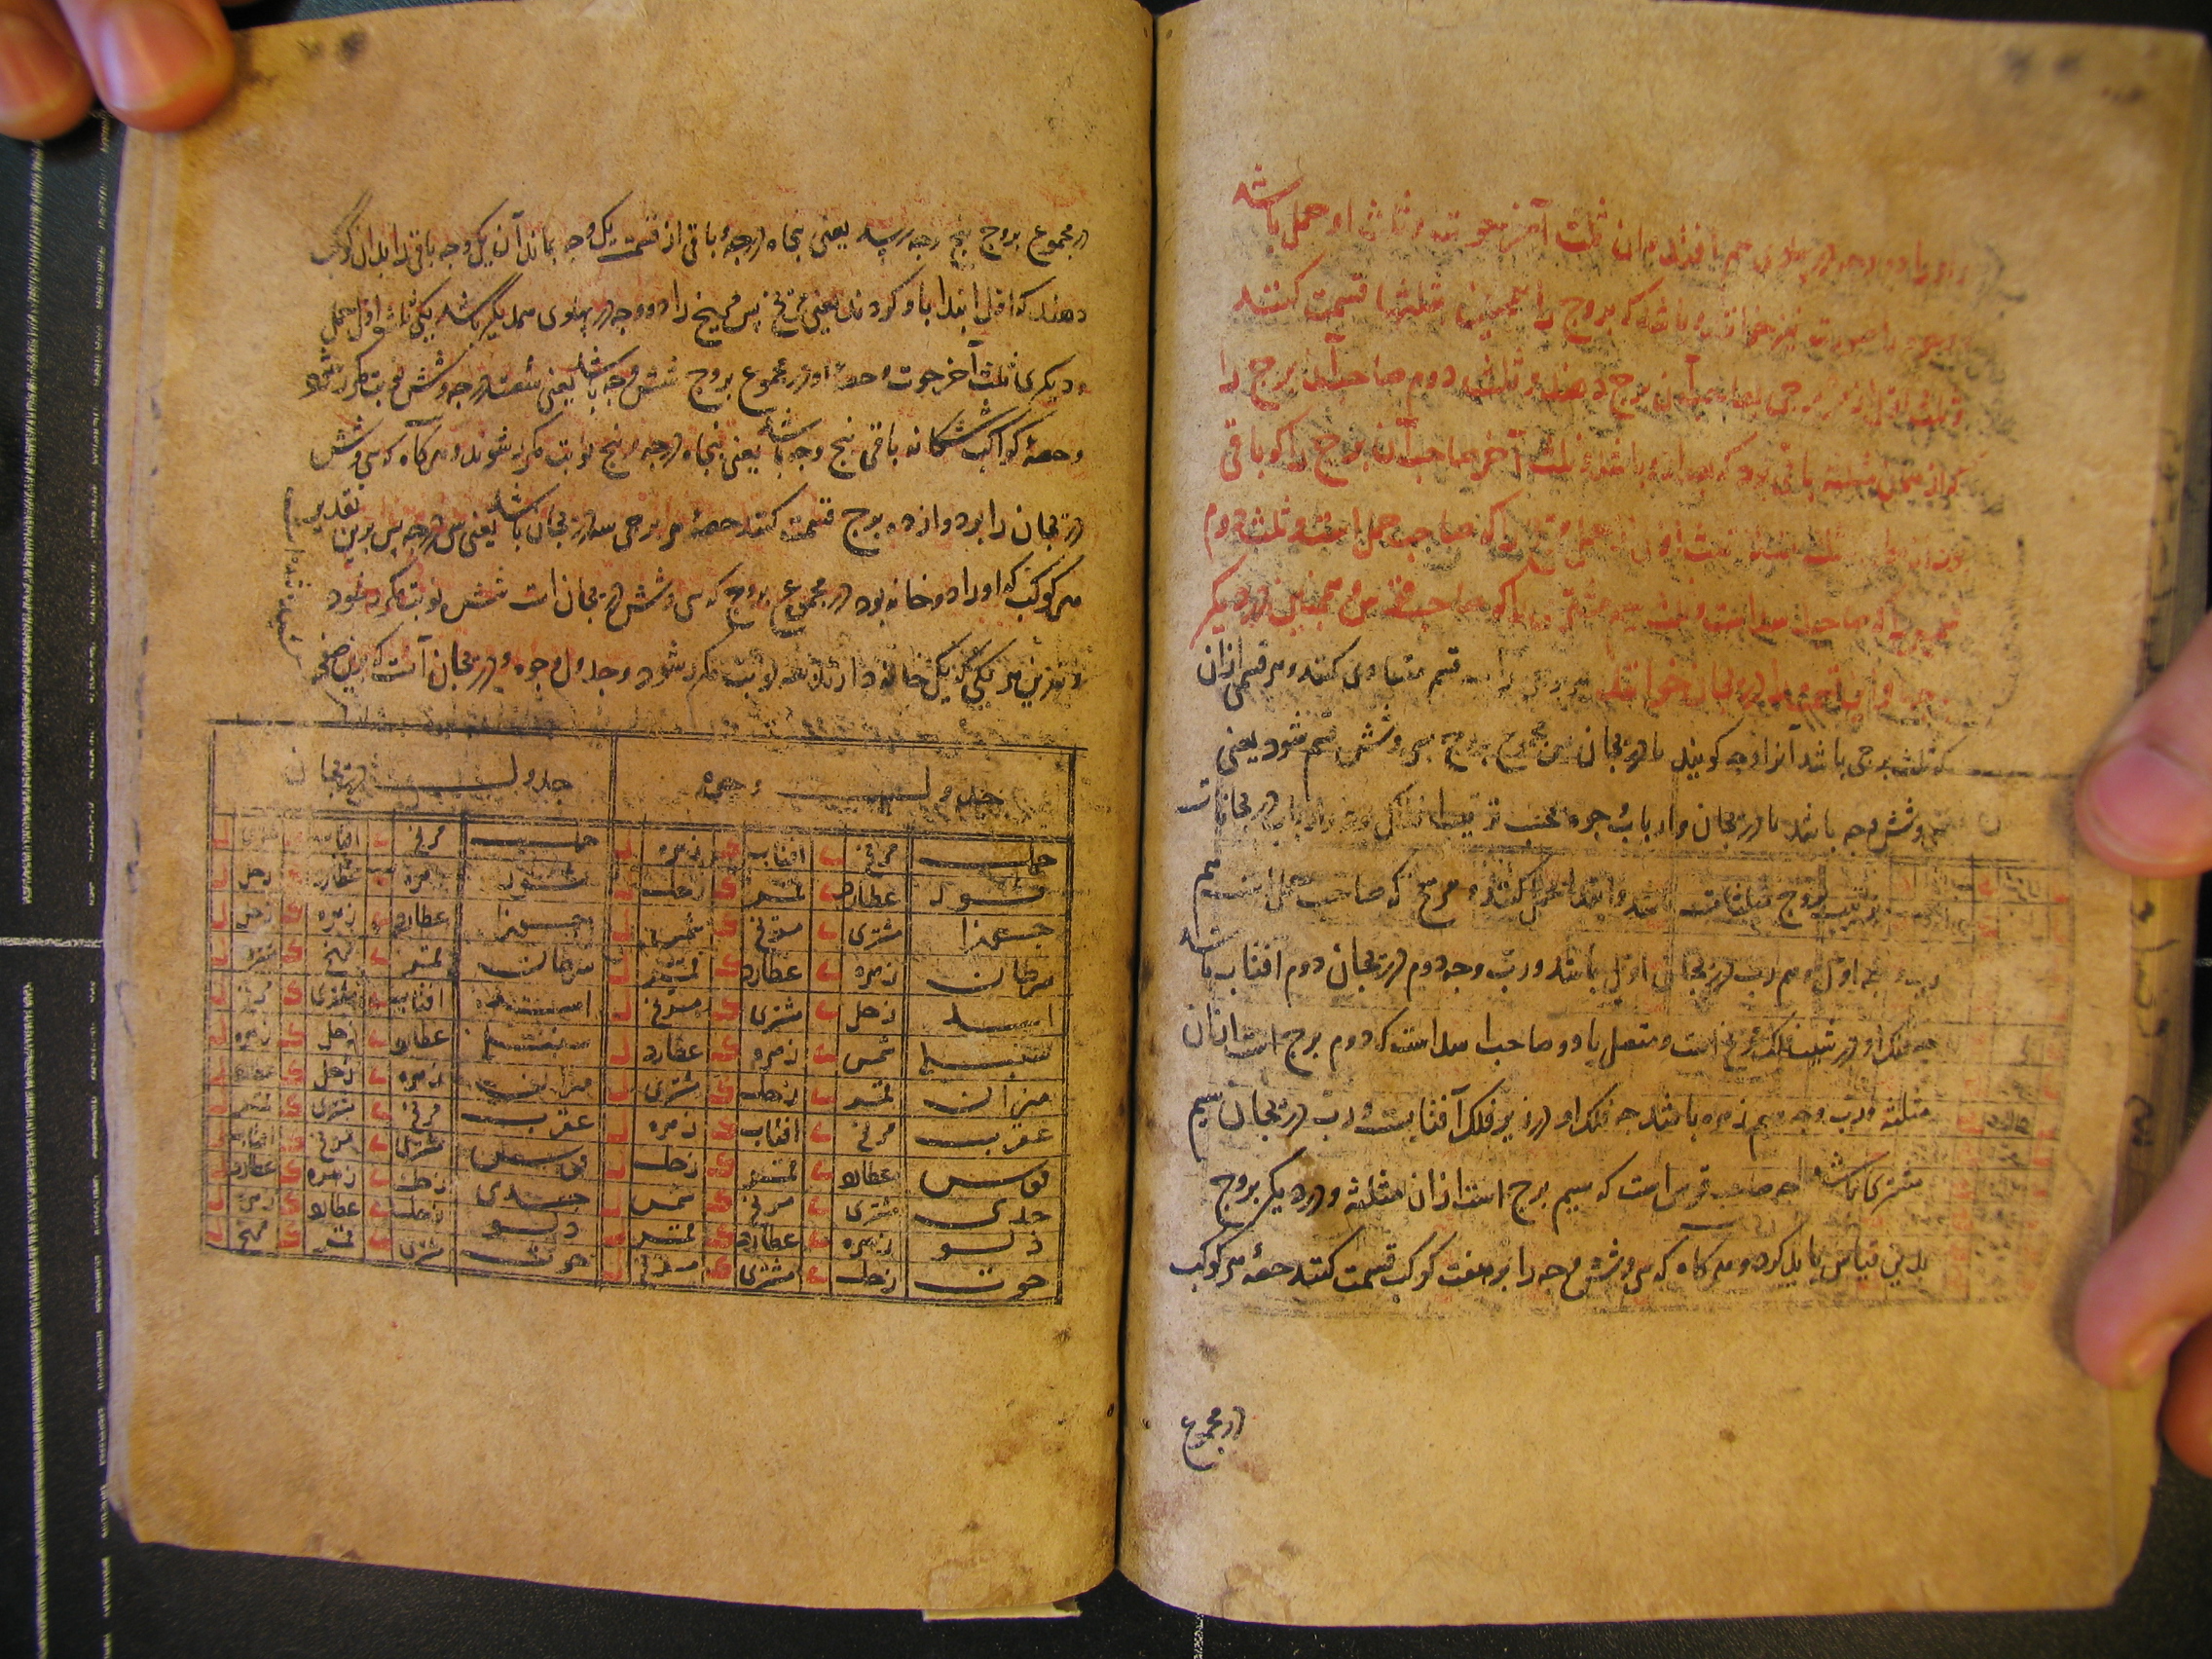 را دو وجه در پهلوی هم افتد و آن ثلث آخر حوت و ثلث او حمل باشد
نیز خوانده باشد که بروج را همچنین بمثلثها قسمت کنند
و ثلث اول از هر برجی بصاحب آن برج دهند و ثلث دوم صاحب آن برج را
که از آن مثلثه باقی بود که بعد ازو باشد و ثلث آخر صاحب آن برج را که باقی
ثلث اول از حمل را که صاحب حمل است و ثلث دوم
شمس را که صاحب اسد است و ثلث سیم مشتری را که صاحب قوس و همچنین در دیگر
بروج و این قسمها را دریجان خوانند هر برجی را سه قسم متساوی کنند و هر قسمی ازان
که ثلث برجی باشد آنرا وجه کویند یا دریجان پس مجموع بروج سی و شش قسم شود یعنی
سی و شش وجه باشد یا دریجان و ارباب وجوه بحسب ترتیب افلاک و ارباب دریجانات
بترتیب بروج مثلثات باشد و ابتدا از حمل کنند و مریخ که صاحب حمل است هم
رب وجه اول و هم رب دریجان اول باشد و رب وجه دوم و دریجان دوم افتاب باشد
چه فلک او در شیب فلک مریخ است و متصل بادو و صاحب اسد است که دوم برج است ازان
مثلثه و رب وجه سیم زهره باشد چه فلک او در زیر فلک آفتابست و رب دریجان سیم
مشتری باشد چه صاحب قوس است که سیم برج است ازان مثلثه و در دیکر بروج
بدین قیاس باید کرد و هرکاه که سی و شش وجه را بر هفت کوکب قسمت کنند حصهٔ هر کوکب
در مجموع
در مجموع بروج پنج وجه رسد یعنی پنجاه درجه و باقی از قسمت یک وجه بماند آن یک وجه باقی را بدان کوکب
دهند که اول ابتدا باو کرده اند یعنی مریخ پس مریخ را دو وجه در پهلوی همدیگر باشد یکی ثلث اول حمل
و دیکری ثلث آخر حوت و حصهٔ او در مجموع بروج شش وجه باشد یعنی شصت درجه و شش نوبت مکرر شود
و حصهٔ کواکب ششکانه باقی پنج وجه باشد یعنی پنجاه درجه و پنج نوبت مکرر شوند و هرکاه که سی و شش
دریجان را بر دوازده برج قسمت کنند حصهٔ هر برجی سه دریجان باشد یعنی سی درجه پس برین تقدیر
هر کوکب که او را دو خانه بود در مجموع بروج که سی و شش دریجان است شش نوبت مکرر شود
و نیرین هر یکی که یک خانه دارند سه نوبت مکرر شود و جدول وجوه و دریجان آنست که برین صفحه
جدول وجوه جدول دریجان
حمل مریخ ے افتاب ک زهره ل حمل مریخ ے افتاب ک مشتری ل
ثور عطارد ے قمر ک زحل ل ثور زهره ے عطارد ک زحل ل
جوزا مشتری ے مریخ ک شمس ل جوزا عطارد ے زهره ک زحل ل
سرطان زهره ے عطارد ک قمر ل سرطان قمر ے مریخ ک مشتری ل
اسد زحل ے مشتری ک مریخ ل اسد افتاب ے مشتری ک مریخ ل
سنبله شمس ے زهره ک عطارد ل سنبله عطارد ے زحل ک زهره ل
میزان قمر ے زحل ک مشتری ل میزان زهره ے زحل ک عطارد ل
عقرب مریخ ے افتاب ک زهره ل عقرب مریخ ے مشتری ک قمر ل
قوس عطارد ے قمر ک زحل ل قوس مشتری ے مریخ ک افتاب ل
جدی مشتری ے مریخ ک شمس ل جدی زحل ے زهره ک عطارد ل
دلو زهره ے عطارد ک قمر ل دلو زحل ے عطارد ک زهره ل
حوت زحل ے مشتری ک مریخ ل حوت مشتری ے قمر ک مریخ ل